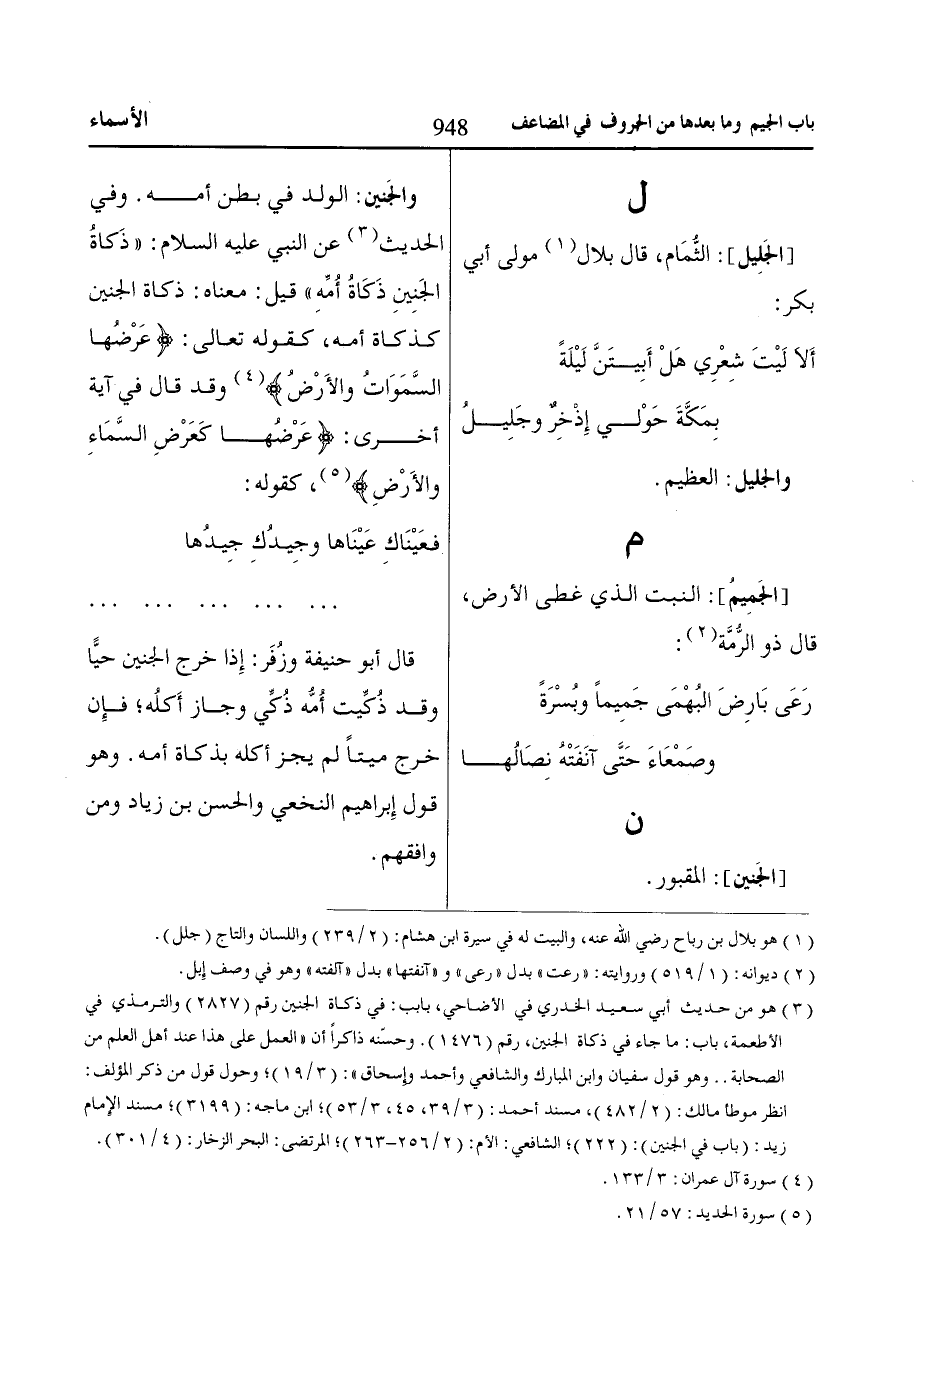 باب الجيم وما بعدها من الحروف في المضاعف
948
الأسماء
ل
[الجَلِيل]: الثُّمَام، قال بلال(١) مولى أبي
بكر:
ألاَ لَيْتَ شعْرِي هَلْ أبيـتَنَّ لَيْلَةً
بِمَكَّةَ حَوْلـي إِذْخِرٌ وجَلِيـلُ
والجليل: العظيم.
م
[الجَمِيمُ]: النبت الذي غطى الأرض،
قال ذو الرُّمَّة(٢):
رَعَى بَارِضَ البُهْمَى جَمِيماً وبُسْرَةً
وصَمْعَاءَ حَتَّى آنَفَتْهُ نِصَالُهـا
ن
[الجَنين]: المقبور.
والجَنين: الولد في بطن أمـه. وفي
الحديث(٣) عن النبي عليه السلام: «ذَكاةُ
الجَنِينِ ذَكَاةُ أُمِّه» قيل: معناه: ذكاة الجنين
كذكاة أمه، كقوله تعالى: ﴿عَرْضُها
السَّمَوَاتُ والأَرْضُ﴾(٤) وقد قال في آية
أخـرى: ﴿عَرْضُهـا كَعَرْضِ السَّمَاءِ
والأَرْضِ﴾(٥)، كقوله:
فعَيْنَاكِ عَيْنَاها وجِيدُكِ جيدُها
... ... ... ... ...
قال أبو حنيفة وزُفَر: إِذا خرج الجنين حيًّا
وقد ذُكِّيت أمُّه ذُكِّي وجاز أكلُه؛ فإِن
خرج ميتاً لم يجز أكله بذكاة أمه. وهو
قول إِبراهيم النخعي والحسن بن زياد ومن
وافقهم.
(١) هو بلال بن رباح رضي الله عنه، والبيت له في سيرة ابن هشام: (٢/٢٣٩) واللسان والتاج (جلل).
(٢) ديوانه: (١/٥١٩) وروايته: «رعت» بدل «رعى» و «آنفتها» بدل «آلفته» وهو في وصف إبل.
(٣) هو من حديث أبي سعيد الخدري في الأضاحي، بابب: في ذكاة الجنين رقم (٢٨٢٧) والترمذي في
الأطعمة، باب: ما جاء في ذكاة الجنين، رقم (١٤٧٦). وحسّنه ذاكراً أن «العمل على هذا عند أهل العلم من
الصحابة.. وهو قول سفيان وابن المبارك والشافعي وأحمد وإسحاق»: (٣/١٩)؛ وحول قول من ذكر المؤلف:
انظر موطأ مالك: (٢/٤٨٢)، مسند أحمد: (٣/٣٩، ٤٥، ٣/٥٣)؛ ابن ماجه: (٣١٩٩)؛ مسند الإمام
زيد: (باب في الجنين): (٢٢٢)؛ الشافعي: الأم: (٢/٢٥٦-٢٦٣)؛ المرتضى: البحر الزخار: (٤/٣٠١).
(٤) سورة آل عمران: ٣/١٣٣.
(٥) سورة الحديد: ٥٧/٢١.